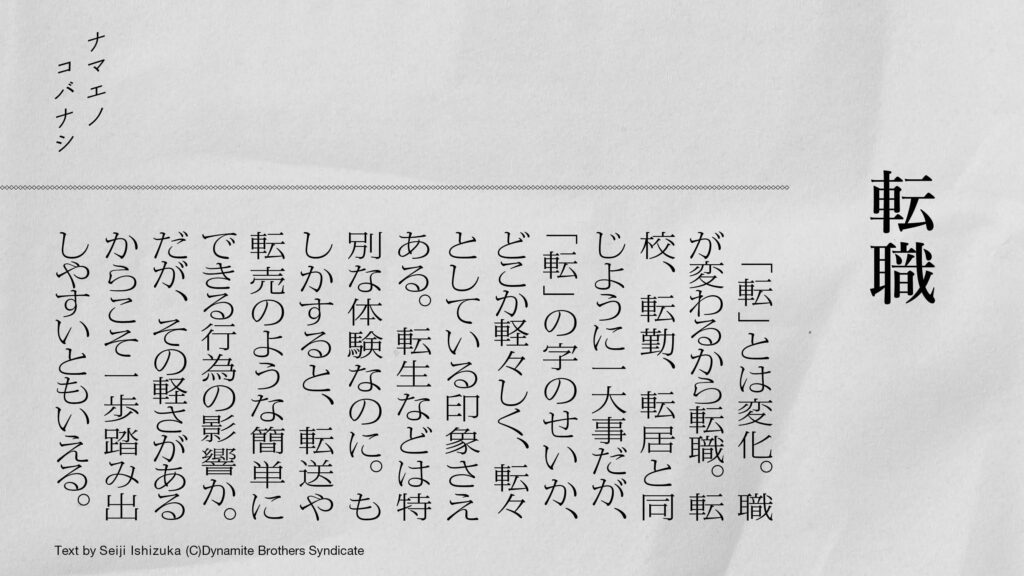 転職
ナマエノ
コバナシ
「転」とは変化。職
が変わるから転職。転
校、転勤、転居と同
じように一大事だが、
「転」の字のせいか、
どこか軽々しく、転々
としている印象さえ
ある。転生などは特
別な体験なのに。も
しかすると、転送や
転売のような簡単に
できる行為の影響か。
だが、その軽さがある
からこそ一歩踏み出
しやすいともいえる。
Text by Seiji Ishizuka (C)Dynamite Brothers Syndicate